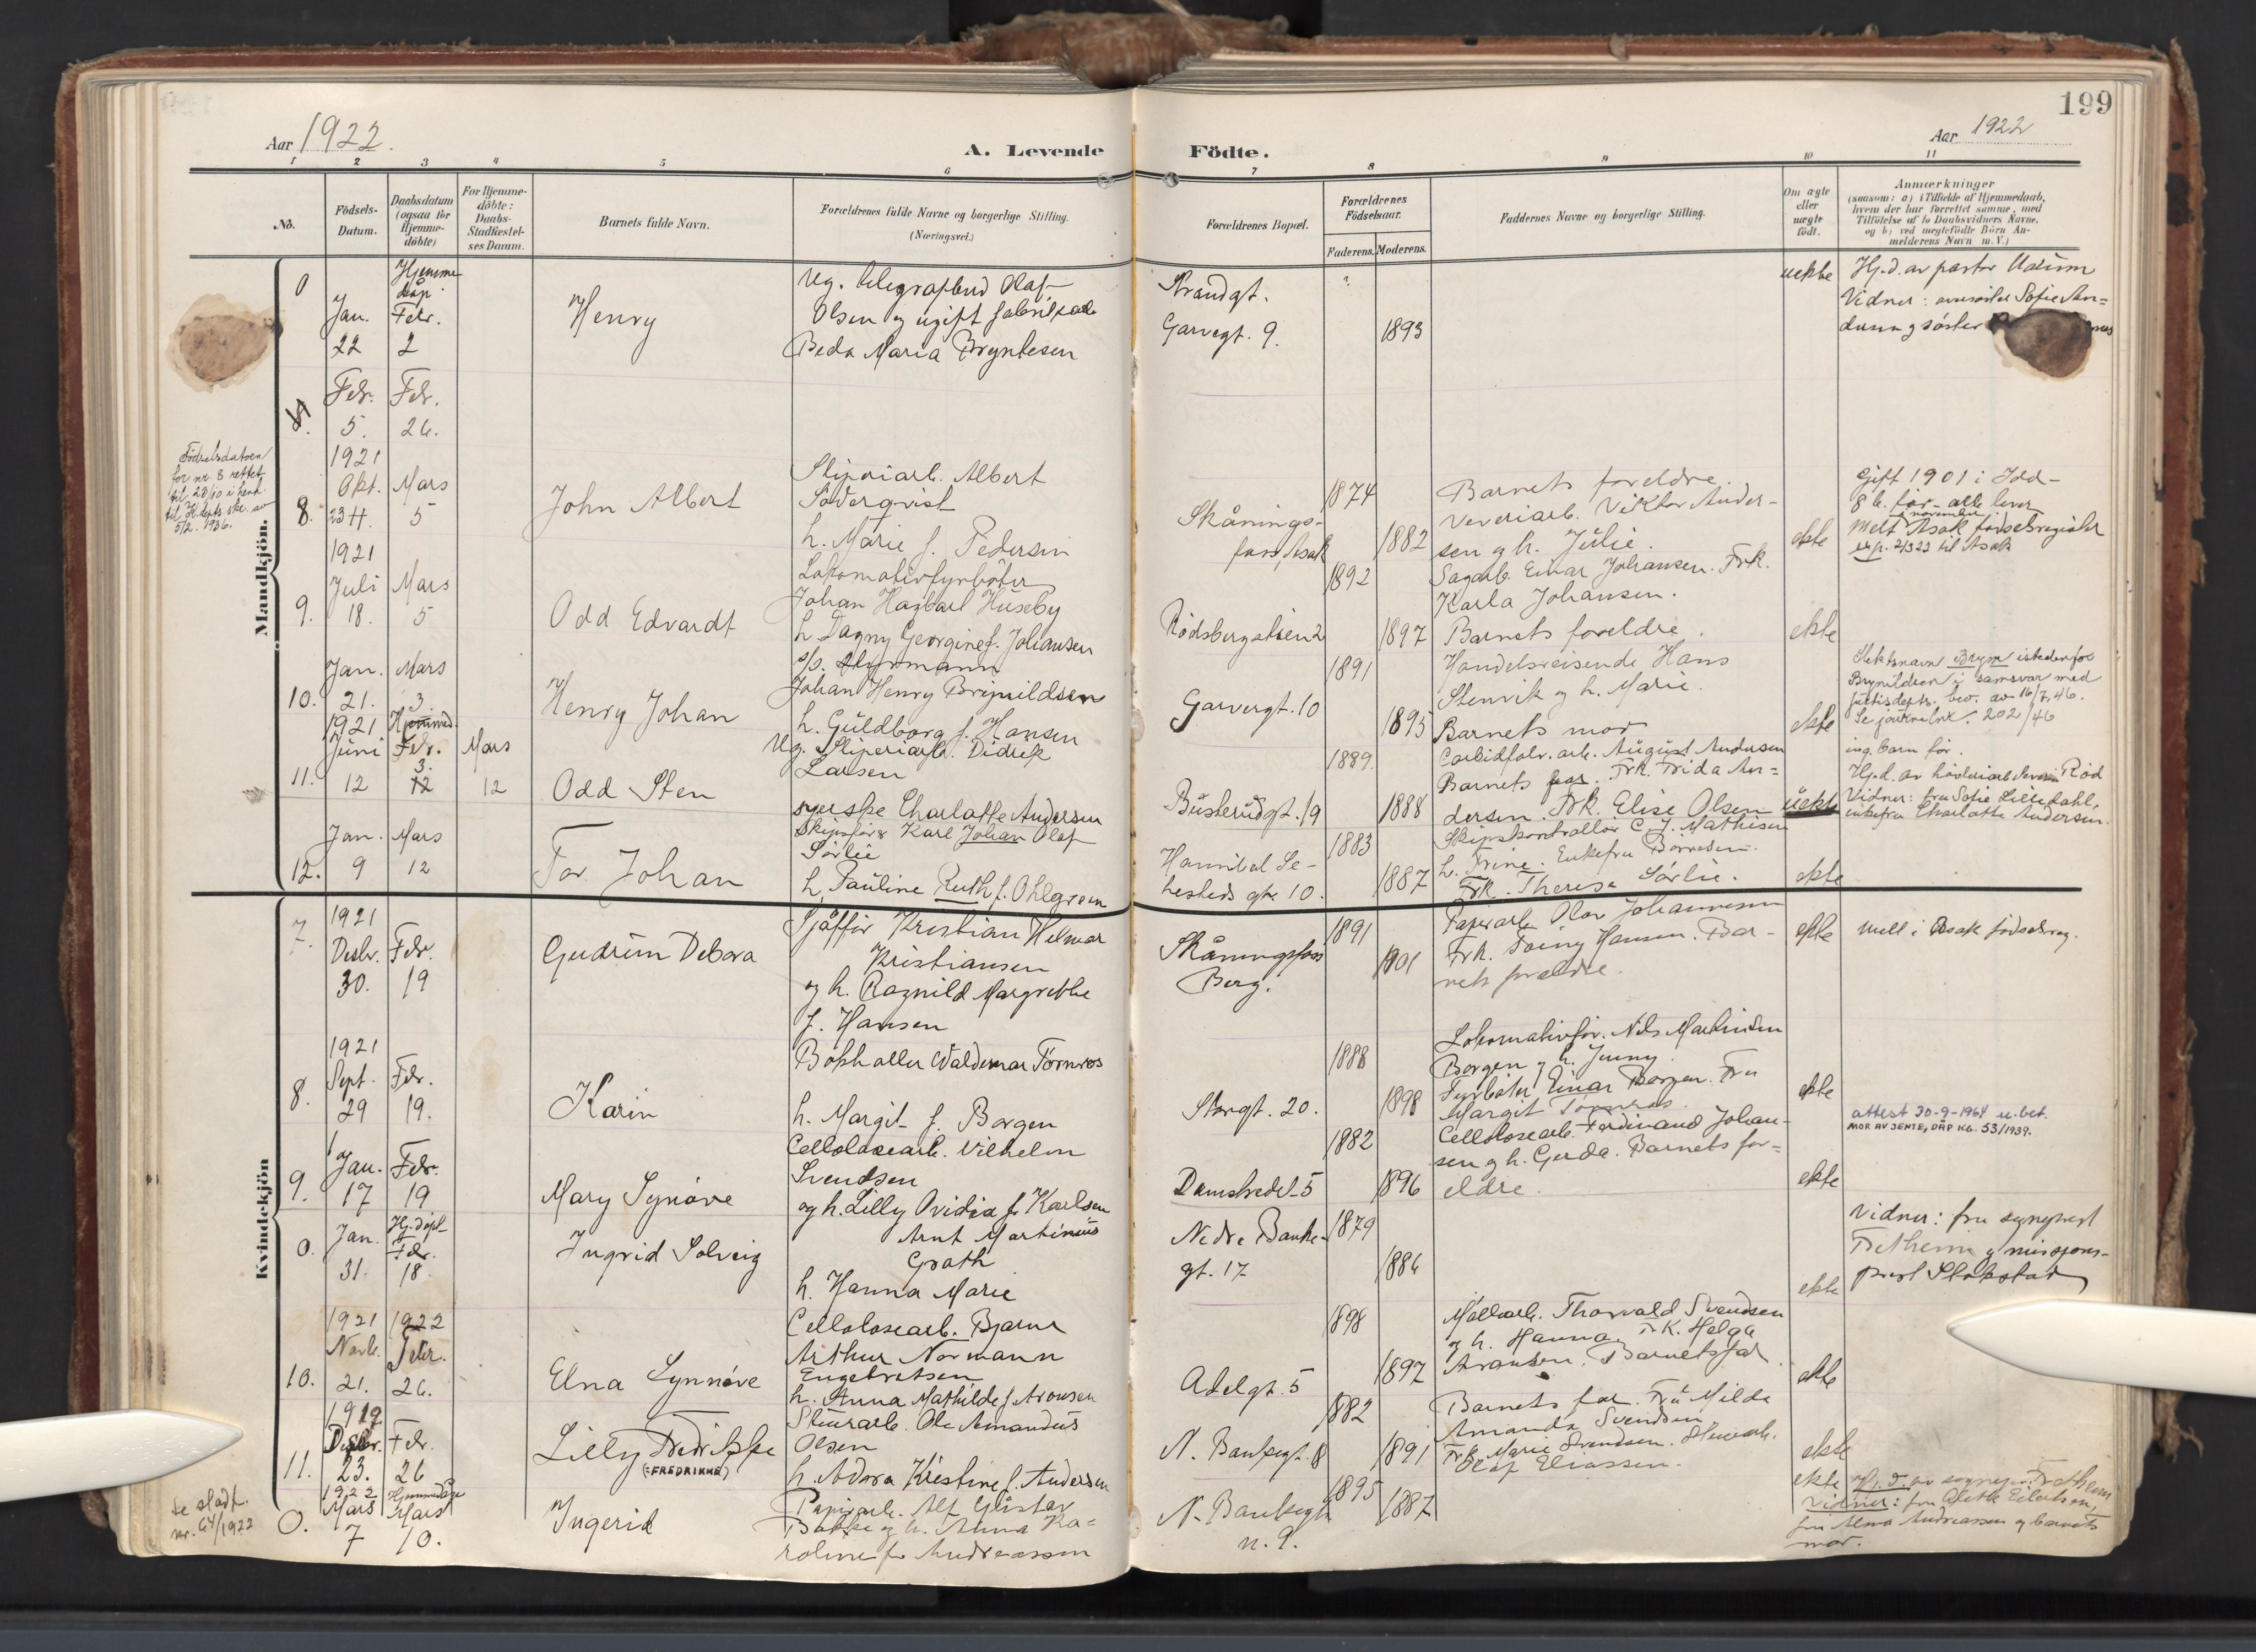 199
Aar 1922.
A. Levende
Födte.
Aar 1922
1 2 3 4 5 6 7 8 9 10 11
No.
Födsels-
Datum.
Daabsdatum
(ogsaa for
Hjemme-
döbte)
For Hjemme-
döbte:
Daabs-
Stadfæstel-
ses Datum.
Barnets fulde Navn.
Forældrenes fulde Navne og borgerlige Stilling.
(Næringsvei.)
Forældrenes Bopæl.
Forældrenes
Födselsaar.
Faderens. Moderens.
Faddernes Navne og borgerlige Stilling.
Om ægte
eller
uægte
födt.
Anmærkninger
(saasom: a) i Tilfælde af Hjemmedaab,
hvem der har forrettet samme, med
Tilföielse af to Daabsvidners Navne,
og b) ved uægtefödte Börn An-
melderens Navn m. V.)
Mandkjön.
0
Jan.
22
Hjemme
dåp
Febr.
2
Henry
Ug. telegrafbud Olaf
Olsen og ugift
Beda Maria Bryntesen
Strandgt.
Garvegt. 9.
?
1893
uekte
Hj.d. av pastor
Vidner: Sofie An-
dersen og söster
Febr.
5.
Febr.
26.
Födselsdatoen
for nr. 8 rettet
til 28/10 i henh.
til av
5/2. 1936.
8.
1921
Okt.
23
Mars
5
John Albert
Sliperiarb. Albert
Söderqvist
h. Marie f. Pedersen
Skånings-
foss, Asak
1874
1882
Barnets foreldre.
Veveriarb. Viktor Ander-
sen og h. Julie.
ekte
Gift 1901 i Idd
8 b. för - alle lever
i november
Melt Asak födselsregister
til Asak
9.
1921
Juli
18.
Mars
5
Odd Edvardt
Lokomotivfyrböter
Johan Hagbart Huseby
h. Dagny Georgine f. Johansen
Rödsbergstien 2
1892
1897
Sagarb. Einar Johansen. Frk.
Karla Johansen.
Barnets foreldre.
ekte
10.
Jan.
21.
Mars
3.
Henry Johan
Styrmann
Johan Henry Brynildsen
h. Guldborg f. Hansen
Garvergt. 10
1891
1895
Handelsreisende Hans
Stenvik og h. Marie.
Barnets mor
ekte
Slektsnavn Brym istedenfor
Brynildsen i samsvar med
Justisdepts. bev. av 16/7.46.
Se journalnr. 202/46
11.
1921
Juni
12
Hjemmed.
Febr.
3.
12
Mars
12
Odd Sten
Ug. Sliperiarb. Didrik
Larsen
syerske Charlotte Andersen
Busterudgt. 19
1889.
1888
Carbidfabr. arb. August Andersen
Barnets far. Frk. Frida An-
dersen. Frk. Elise Olsen
uekte
ing. barn för.
Hj.d. av Röd
Vidner: fru Sofie Lilledahl,
enkefru Charlotte Andersen.
12.
Jan.
9
Mars
12
Tor Johan
Skipsförer Karl Johan Olaf
Sörlie
h. Pauline Ruth f. Ohlgreen
Hannibal Se-
hesteds gt. 10.
1883
1887
Skipskontrollör C. J. Mathisen
h. Trine. Enkefru Börresen.
Frk. Therese Sörlie.
ekte
Kvindekjön
7.
1921
Desbr.
30.
Febr.
19
Gudrun Debora
Sjåfför Kristian Helmar
Kristiansen
og h. Ragnild Margrethe
f. Hansen
Skåningsfoss
Berg.
1891
1901
Papirarb. Olav Johannesen
Frk. Hansen. Bar-
nets foreldre.
ekte
Meld i Asak födselsreg.
8.
1921
Sept.
29
Febr.
19.
Karin
Bokholler Waldemar Törnros
h. Margit f. Borgen
Storgt. 20.
1888
1898
Lokomotivför. Nils Martinsen
Borgen og h. Jenny.
Fyrböter Einar Borgen. Fru
Margit Törnros.
ekte
attest 30-9-1964 u. bet.
MOR AV JENTE, DÅP KB. 53/1939.
9.
Jan.
17
Febr.
19
Mary Synöve
Cellolosearb. Vilhelm
Svendsen
og h. Lilly Ovidia f. Karlsen
Damstredet 5
1882
1896
Cellolosearb. Ferdinand Johan-
sen og h. Gerda. Barnets for-
eldre.
ekte
0.
Jan.
31.
Hj. döpt
Febr.
18
Ingrid Solveig
Arnt Martinius
Grath
h. Hanna Marie
Nedre Banke-
gt. 17
1879
1886
ekte
Vidner: fru sogneprest
Tretheim og misjons-
prest Stokstad
10.
1921
Novbr.
21.
1922
Febr.
26.
Elna Synnöve
Cellolosearb. Bjarne
Arthur Normann
Engebretsen
h. Anna Mathilde f. Aronsen
Adelgt. 5
1898
1897
Möllearb. Thorvald Svendsen
og h. Hanna. Frk. Helga
Aronsen. Barnets far.
ekte
11.
1919
Desbr.
23.
Febr.
26
Lilly Fredrikke
(=FREDRIKKE)
Stuerarb. Ole Amandus
Olsen
h. Adora Kristine f. Andersen
N. Bankegt. 8
1882
1891
Barnets far. Fru Milda
Amanda Svendsen.
Frk. Marie Svendsen. Stuerarb.
Olaf Eliassen.
ekte
se stadf.
nr. 64/1922
0.
1922
Mars
7
Hjemmedöpt
Mars
10.
Ingerid
Papirarb. Alf Gustav
Bakke og h. Anna Ka-
roline f. Andreassen
N. Bankegt.
n. 9.
1895
1887
ekte
Hj. d. av sognepr. Tretheim
Vidner: fru Eilertsen,
fru Alma Andreassen og barnets
mor.